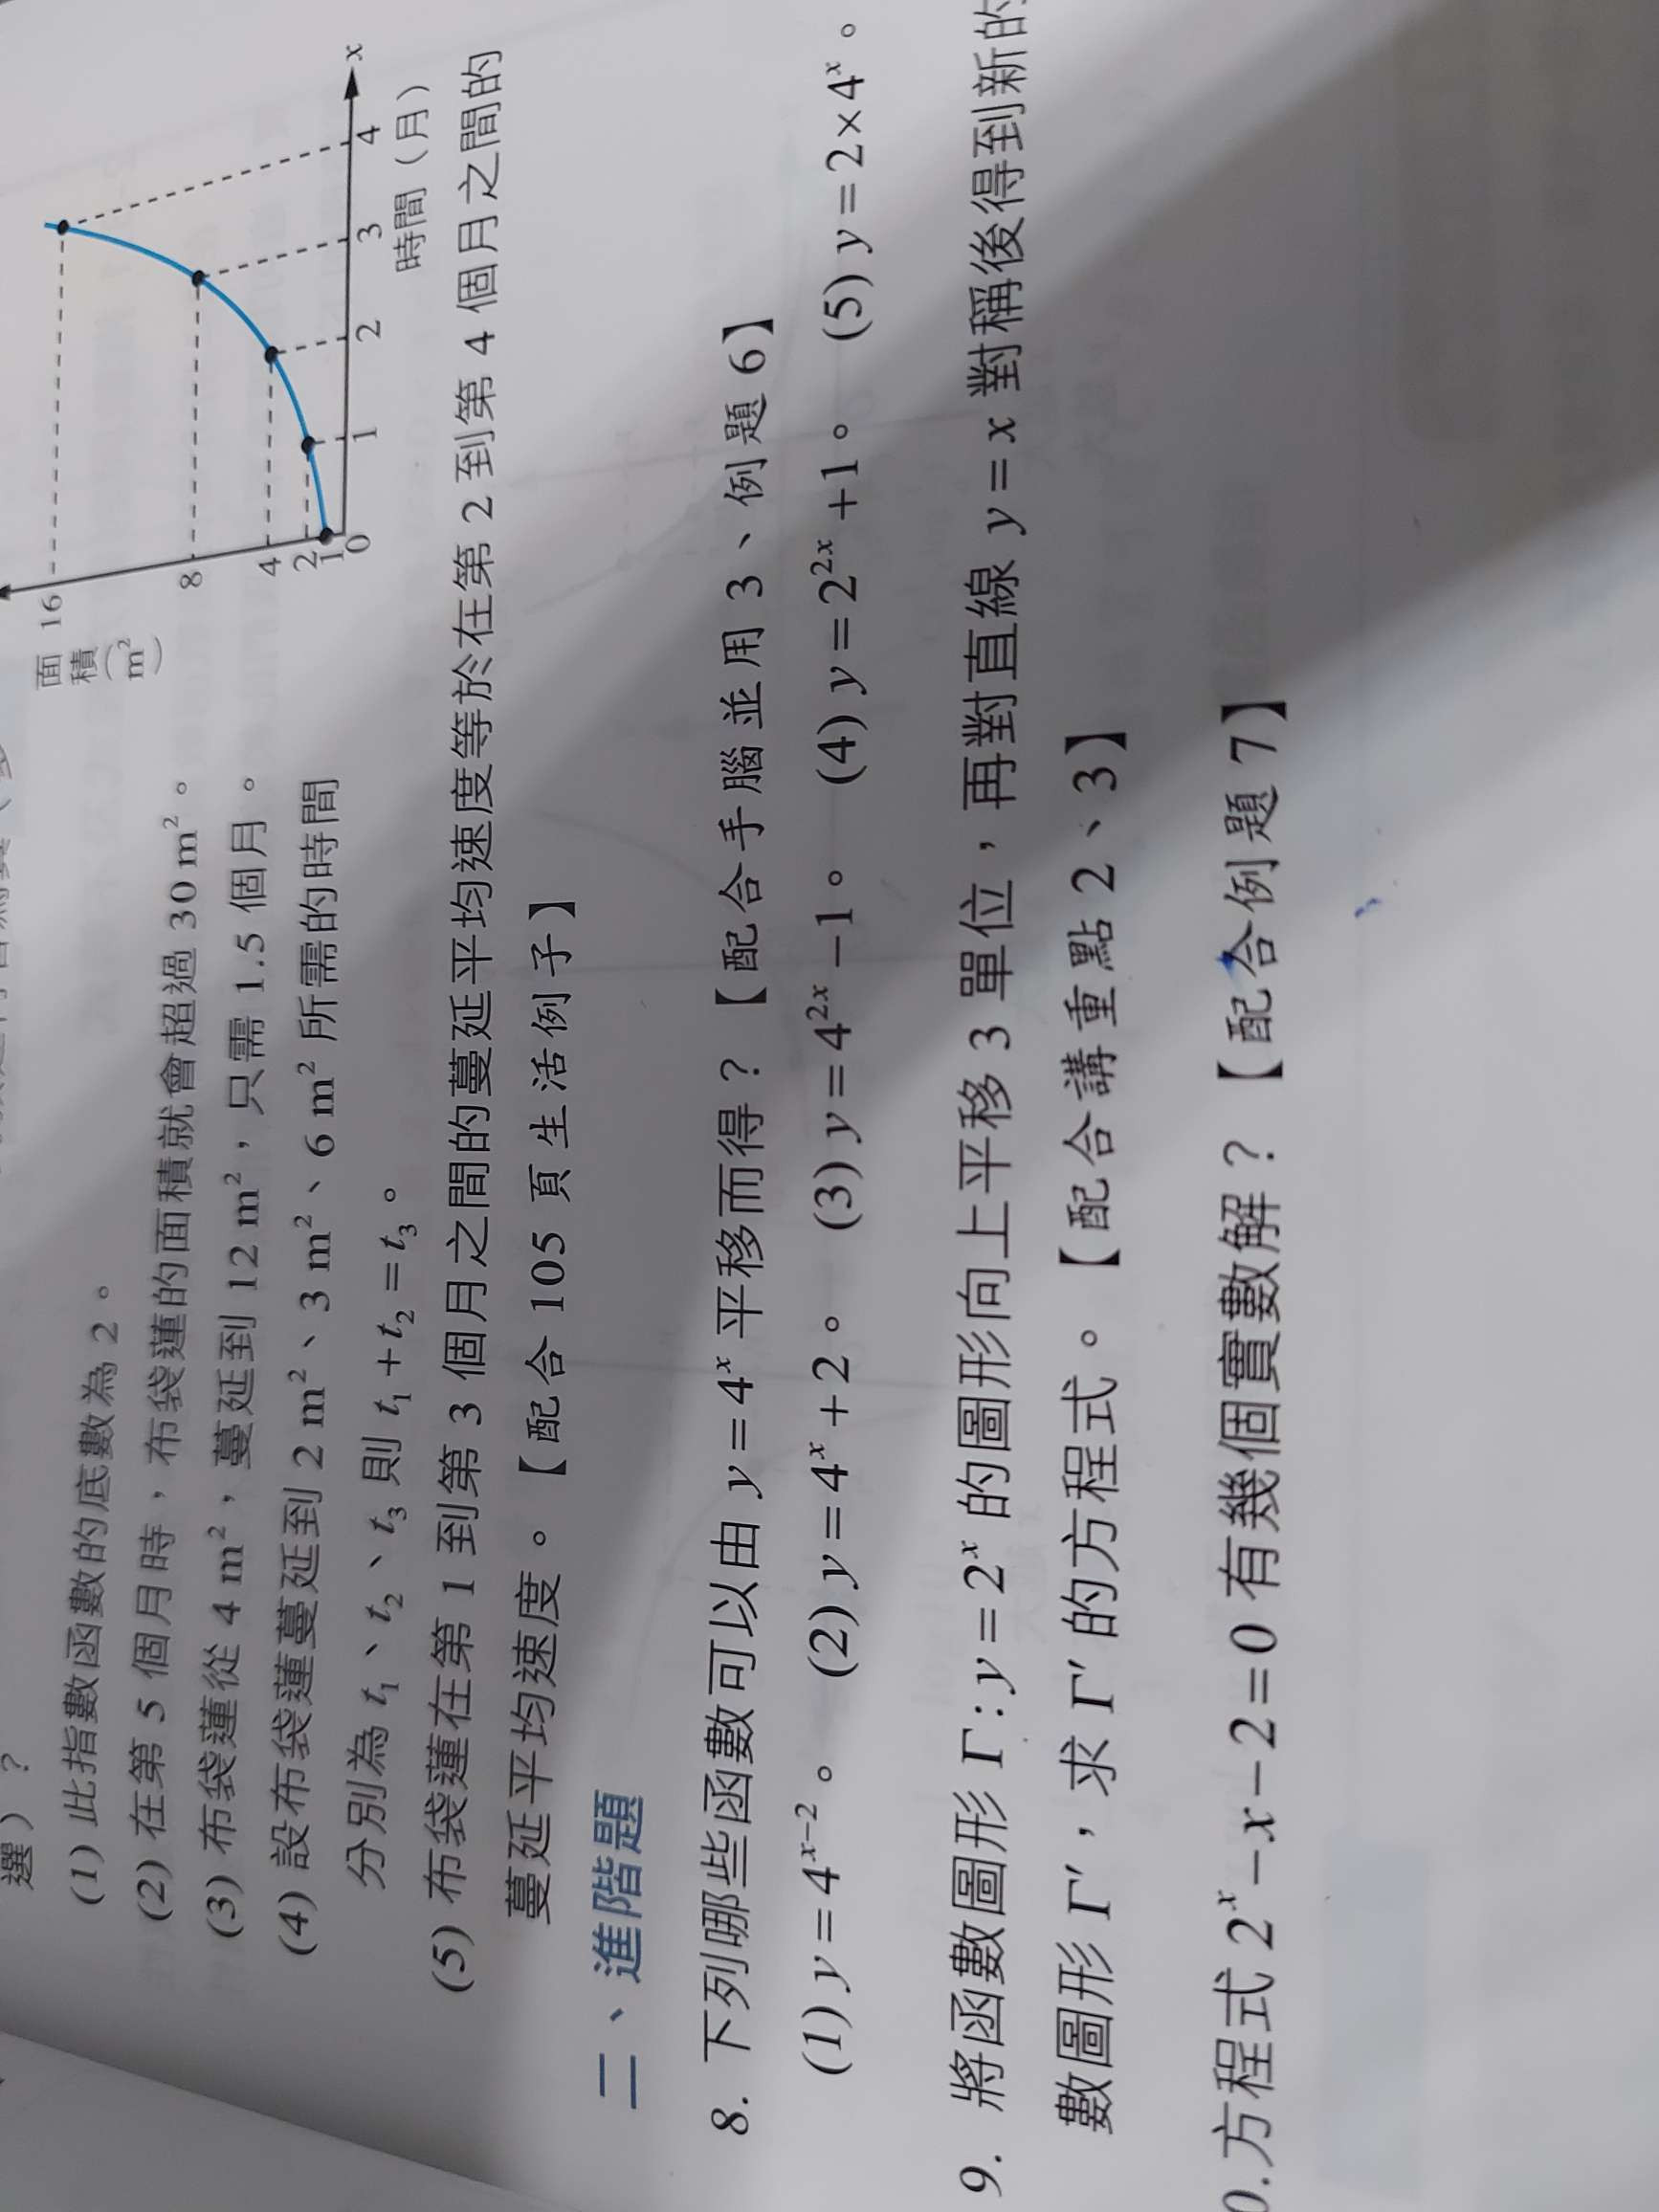 選）？
(1) 此指數函數的底數為 2。
(2) 在第 5 個月時，布袋蓮的面積就會超過 30 m²。
(3) 布袋蓮從 4 m²，蔓延到 12 m²，只需 1.5 個月。
(4) 設布袋蓮蔓延到 2 m²、3 m²、6 m² 所需的時間
分別為 t₁、t₂、t₃ 則 t₁ + t₂ = t₃。
(5) 布袋蓮在第 1 到第 3 個月之間的蔓延平均速度等於在第 2 到第 4 個月之間的
蔓延平均速度。【配合 105 頁生活例子】
面積(m²)
16
8
4
2
1
0
1 2 3 4 x
時間（月）
二、進階題
8. 下列哪些函數可以由 y = 4ˣ 平移而得？【配合手腦並用 3、例題 6】
(1) y = 4ˣ⁻²。 (2) y = 4ˣ + 2。 (3) y = 4²ˣ − 1。 (4) y = 2²ˣ + 1。 (5) y = 2 × 4ˣ。
9. 將函數圖形 Γ : y = 2ˣ 的圖形向上平移 3 單位，再對直線 y = x 對稱後得到新的
數圖形 Γ′，求 Γ′ 的方程式。【配合講重點 2、3】
0. 方程式 2ˣ − x − 2 = 0 有幾個實數解？【配合例題 7】